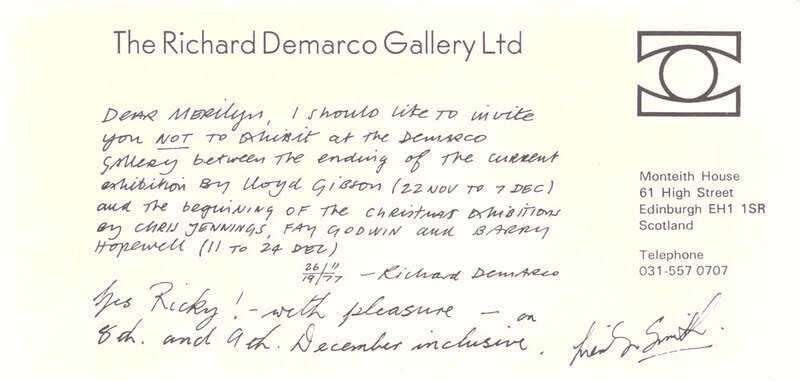 The Richard Demarco Gallery Ltd
DEAR MERILYN, I should like to invite
you NOT to exhibit at the Demarco
Gallery between the ending of the current
exhibition By Lloyd Gibson (22 NOV to 7 DEC)
and the beginning OF The CHRISTMAS EXHIBITIONS
By CHRIS JENNINGS, FAY GODWIN and BARRY
Hopewell (11 TO 24 DEC)
26/11
19/77 — Richard DEMARCO
Yes Ricky! – with pleasure – on
8th. and 9th. December inclusive.
Smith.
Monteith House
61 High Street
Edinburgh EH1 1SR
Scotland
Telephone
031-557 0707